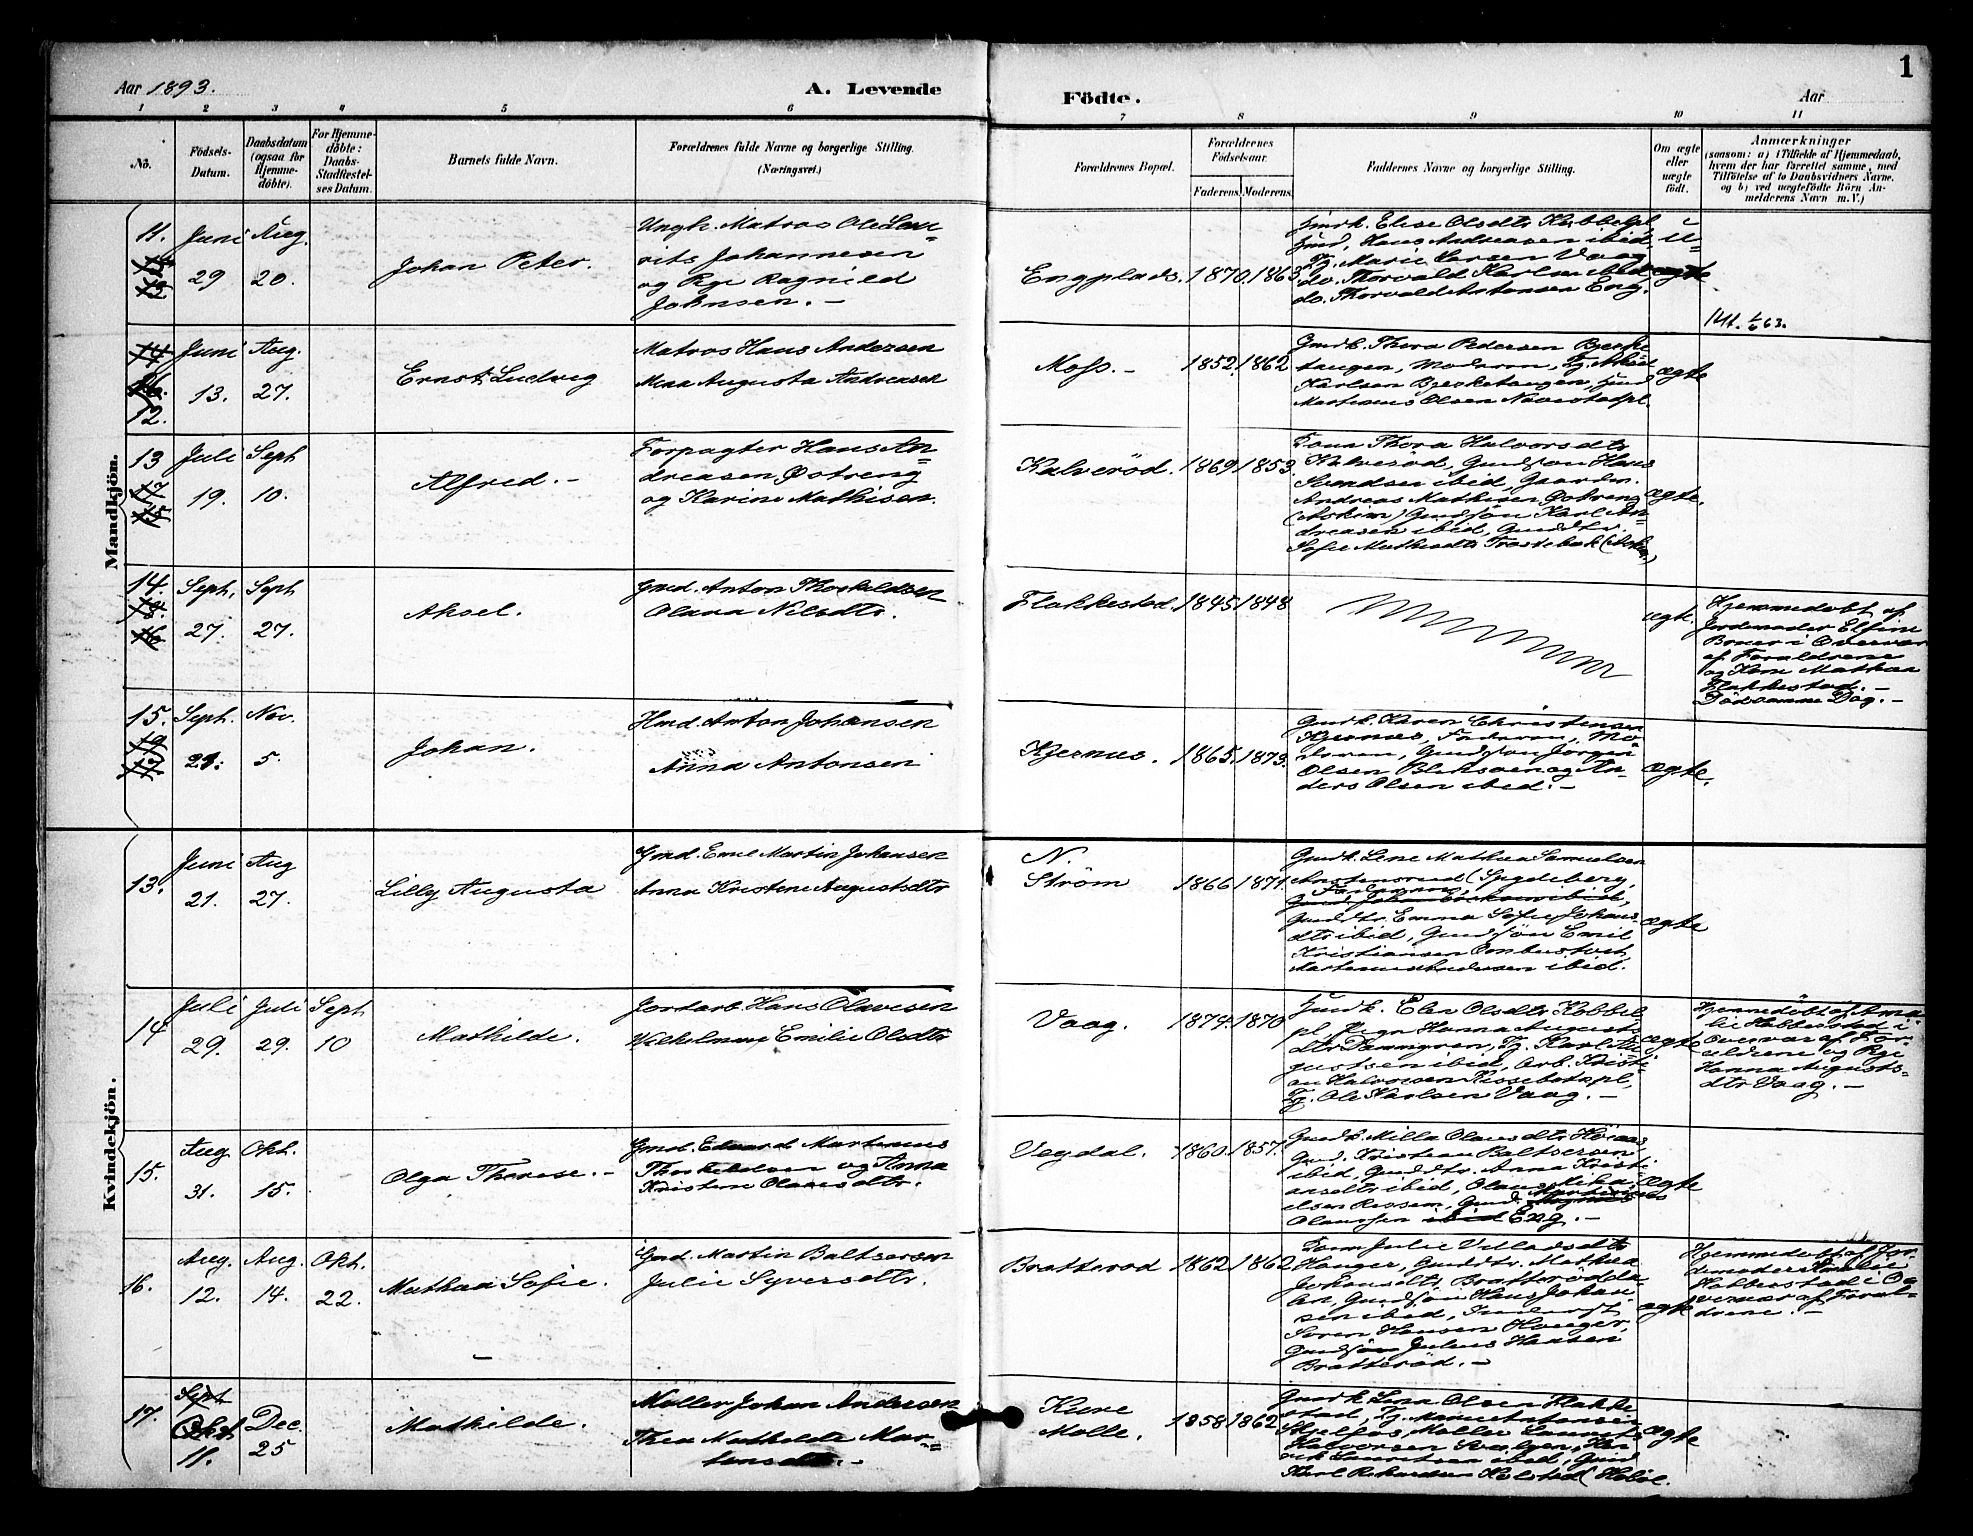 Aar 1893.
A. Levende
Födte.
Aar
1
1 2 3 4 5 6 7 8 9 10 11
No.
Födsels-
Datum.
Daabsdatum
(ogsaa for
Hjemme-
döbte).
For Hjemme-
döbte:
Daabs-
Stadfæstel-
ses Datum.
Barnets fulde Navn.
Forældrenes fulde Navne og borgerlige Stilling.
(Næringsvei.)
Forældrenes Bopæl.
Forældrenes
Födselsaar.
Faderens. Moderens.
Faddernes Navne og borgerlige Stilling.
Om ægte
eller
uægte
födt.
Anmærkninger
(saasom: a) i Tilfælde af Hjemmedaab,
hvem der har forrettet samme, med
Tilföielse af to Daabsvidners Navne,
og b) ved uægtefödte Börn An-
melderens Navn m.V.)
Mandkjön.
11.
Juni
29
Aug.
20.
Johan Peter.
Ungk. Matros Ole Lau-
rits Johannesen
og Pge Ragnild
Johnsen. —
Engplads.
1870.
1863.
Gmdk. Elise Olsdtr Kobbelpl,
Gmd, Hans Andreasen ibid,
Pg. Marie Larsen Vaag
do. Thorvald Karlsen ibid
do. Thorvald Antonsen Eng.
u-
ægte
12.
Juni
13.
Aug.
27.
Ernst Ludvig
Matros Hans Andersen
Mina Augusta Andreasen
Moss. —
1852.
1862
Gmdk. Thora Pedersen Bjerke-
tangen, Moderen,
Karlsen Bjerketangen, Gmd
Martinus Olsen
ægte
13
Juli
19.
Sept
10.
Alfred. —
Forpagter Hans An-
dreasen Østreng
og Karine Mathisen.
Kalveröd.
1869.
1853.
Thora Halvorsdtr
Kalveröd, Gmdsön Hans
Svendsen ibid, Gaardm.
Andreas Mathisen Østreng
(Askim) Gmdsön Karl An-
dreasen ibid, Gmddtr.
Sofie Mathisdtr
ægte.
14.
Sept,
27.
Sept
27.
Aksel.
Gmd. Anton Thorkildsen
Olava Nilsdtr.
Flakkestad.
1845
1848
ægte.
Hjemmedøbt af
Jordemoder Elfine
i Overvær
af Forældrene
og Kone Mathea
Flakkestad. —
Død samme Dag. —
15.
Sept.
21.
Nov.
5.
Johan.
Hmd. Anton Johansen
Anna Antonsen
Kjernes.
1865.
1873.
Gmdk. Karen Christensen
Kjernes, Faderen, Mo-
deren, Gmdsön Jörgen
Olsen og An-
ders Olsen ibid. —
ægte.
Kvindekjön.
13.
Juni
21.
Aug
27.
Lilly Augusta
Gmd. Emil Martin Johansen
Anna Kristine Augustsdtr
N.
Ström
1866
1871.
Gmdk. Lene Mathea Samuelsen
(Spydeberg,
Faderen,
Gmddtr. Emma Sofie Johans
dtr ibid, Gmdsön Emil
Kristiansen
Martinus Andersen ibid.
ægte
14
Juli
29.
Juli
29.
Sept
10
Mathilde.
Jordarb. Hans Olavesen
Vilhelmine Emilie Olsdtr
Vaag.
1874.
1870
Gmdk. Elen Olsdtr Kobbel
pl, Pigen Hanna Augusts
dtr Dammyren, Pg. Karl Au-
gustsen ibid, Arb. Kristi-
an Halvorsen
Pg. Ole Karlsen Vaag. —
ægte
Hjemmedöbt af Ama-
lie Hobberstad i
Overvær af For-
ældrene og Pge
Hanna Augusts-
dtr Vaag. —
15.
Aug.
31.
Okt.
15.
Olga Therese. —
Gmd. Edvard Martinius
Thorkildsen og Anna
Kristine Olausdtr.
Vegdal.
1860.
1857.
Gmdk. Milla Olausdtr
Gmd. Kristian Baltsersen
ibid, Gmddtr. Anna Kristi-
ansdtr ibid, Olaus Mika-
elsen Gmd.
Olaussen Eng. —
ægte
16.
Aug.
12.
Aug.
14.
Okt.
22.
Mathea Sofie.
Gmd. Martin Baltsersen
Julie Syversdtr.
Bratteröd
1862
1862
Julie Villadsdtr
Hauger, Gmddtr. Mathea
Johansdtr. Bratterödda-
len, Gmdsön Hans Johan-
sen ibid,
Sören Hansen Hauger,
Gmdsön Julius Hansen
Bratteröd. —
ægte
Hjemmedöbt af Jor-
demoder Amalie
Hobberstad i O-
vervær af Foræl-
drene. —
17.
Sept
Okt
11.
Dec.
25
Mathilde.
Møller Johan Andersen
Thea Mathilde Mar-
tinsdtr. —
Kure
Mølle.
1858
1862
Gmdk. Lina Olsen Flakke
stad, Pg. Marie Antonsen
Møller Laurits
Halvorsen
Lauritsen ibid, Gmd
Karl Rikardsen Kolstad (Hobøl.
ægte